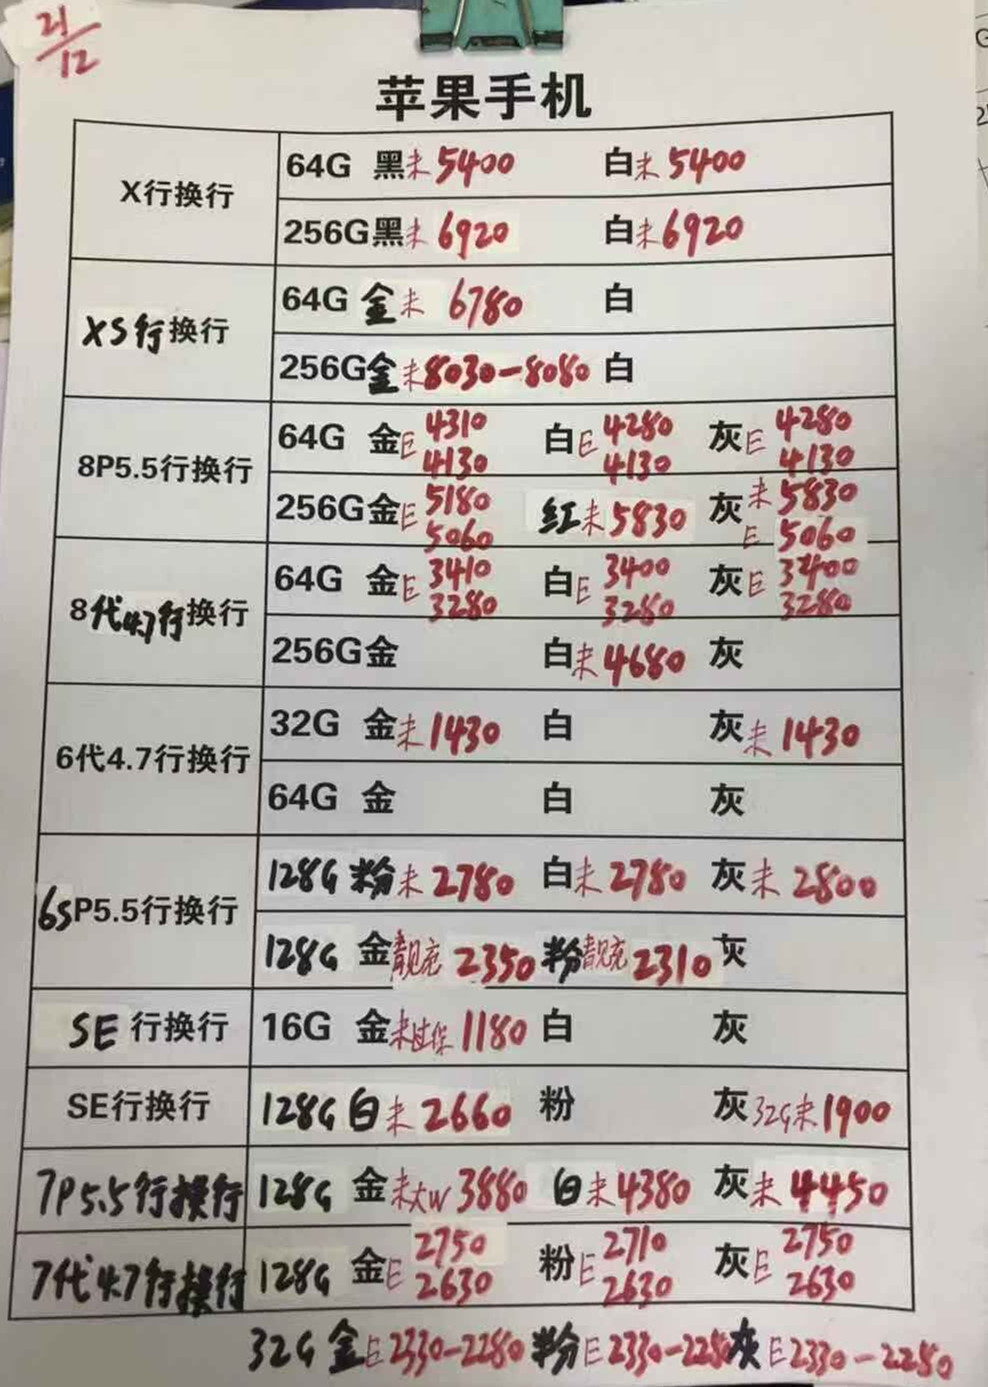 21/12
苹果手机
X行换行
64G 黑未5400 白未5400
256G黑未6920 白未6920
XS行换行
64G 金未 6780 白
256G金未8030-8080 白
8P5.5行换行
64G 金E 4310 4130 白E 4280 4130 灰E 4280 4130
256G金E 5180 5060 红未5830 灰未5830 E 5060
8代4.7行换行
64G 金E 3410 3280 白E 3400 3280 灰E 3400 3280
256G金 白未4680 灰
6代4.7行换行
32G 金未1430 白 灰未1430
64G 金 白 灰
6SP5.5行换行
128G 粉未2780 白未2780 灰未2800
128G 金靓充2350 粉靓充2310 灰
SE 行换行
16G 金未过保1180 白 灰
SE行换行
128G白未2660 粉 灰32G未1900
7P5.5行换行
128G 金未大W3880 白未4380 灰未4450
7代4.7行换行
128G 金E 2750 2630 粉E 2710 2630 灰E 2750 2630
32G 金E2330-2280 粉E2330-2280 灰E2330-2280